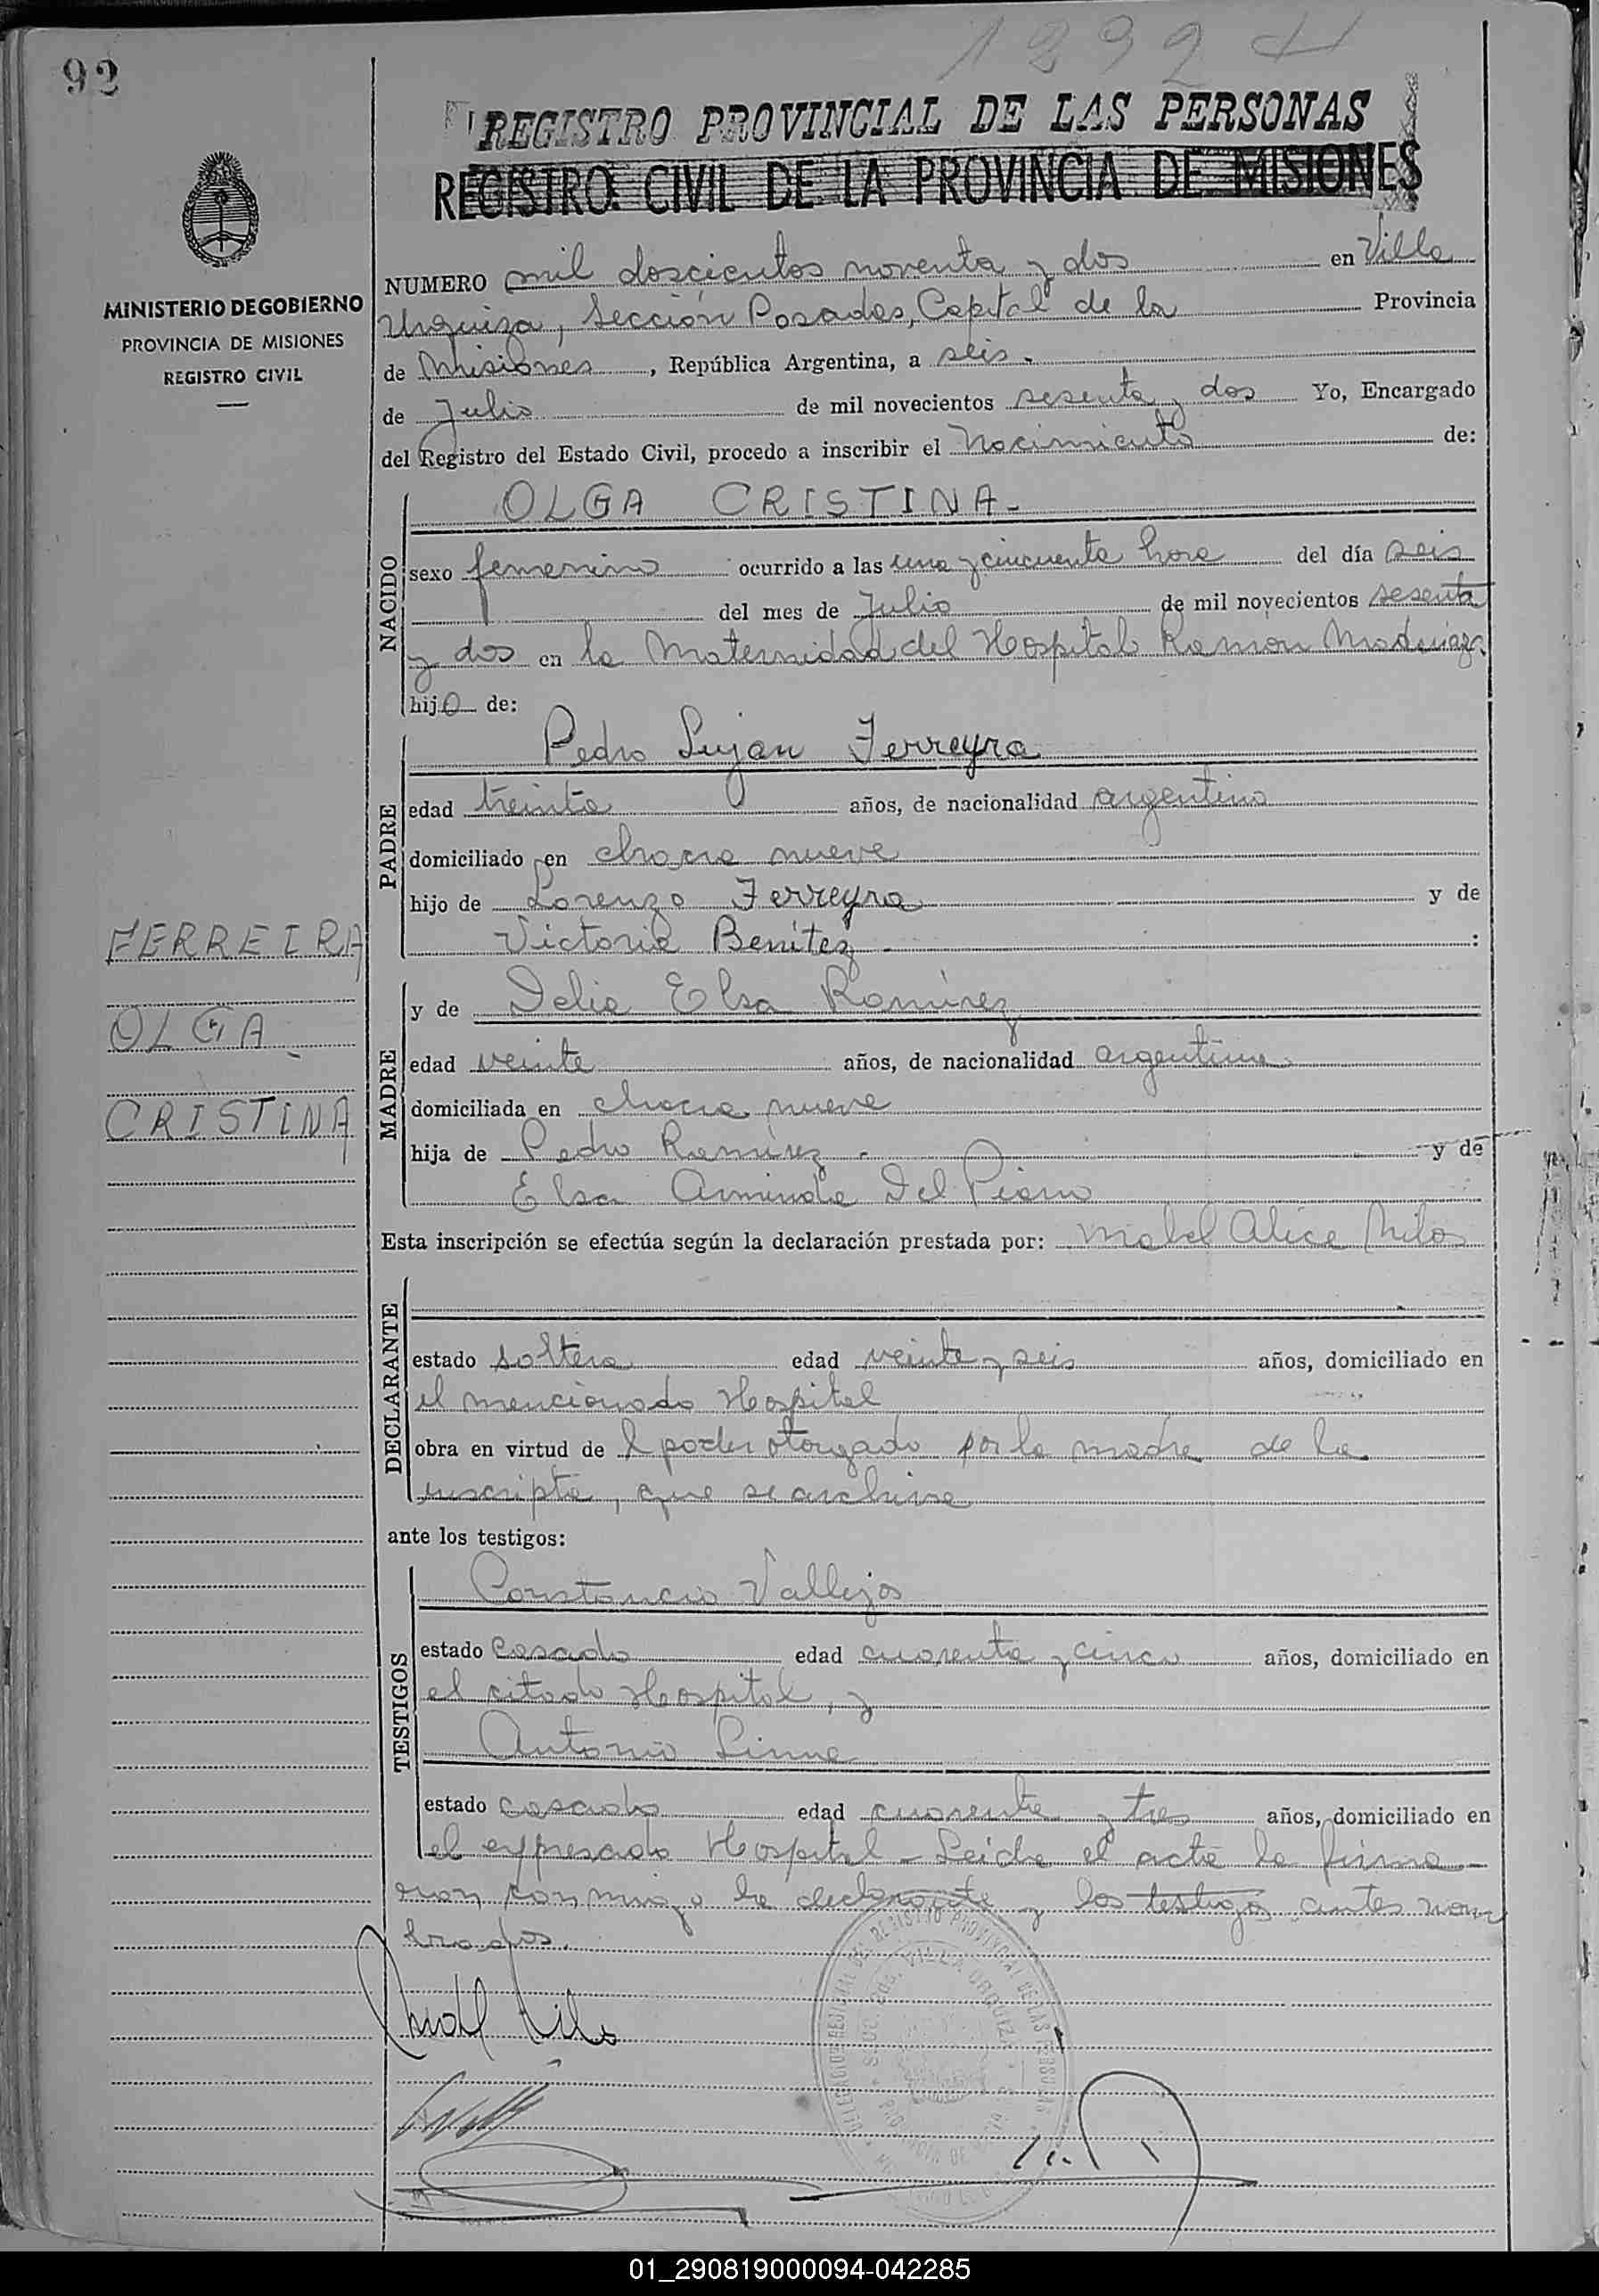 92
1292
REGISTRO PROVINCIAL DE LAS PERSONAS
REGISTRO CIVIL DE LA PROVINCIA DE MISIONES
MINISTERIO DE GOBIERNO
PROVINCIA DE MISIONES
REGISTRO CIVIL
NUMERO mil doscientos noventa y dos en Villa
Urquiza, Sección Posadas, Capital de la Provincia
de Misiones, República Argentina, a seis.
de Julio de mil novecientos sesenta y dos Yo, Encargado
del Registro del Estado Civil, procedo a inscribir el Nacimiento de:
NACIDO
OLGA CRISTINA.
sexo femenino ocurrido a las una y cincuenta hora del día seis
del mes de Julio de mil novecientos sesenta
y dos en la Maternidad del Hospital Ramon Madariaga.
hijo de:
PADRE
Pedro Lujan Ferreyra
edad treinta años, de nacionalidad argentino
domiciliado en chacra nueve
hijo de Lorenzo Ferreyra y de
Victoria Benítez :
FERREIRA
OLGA
CRISTINA
MADRE
y de Delia Elsa Ramírez
edad veinte años, de nacionalidad argentina
domiciliada en chacra nueve
hija de Pedro Ramírez y de
Elsa Arminda Del
Esta inscripción se efectúa según la declaración prestada por: Mabel Alice Milos
DECLARANTE
estado soltera edad veinte y seis años, domiciliado en
el mencionado Hospital
obra en virtud de l poder otorgado por la madre de la
inscripta, que se archiva
ante los testigos:
TESTIGOS
Constancio Vallejos
estado casado edad cuarenta y cinco años, domiciliado en
el citado Hospital, y
Antonio
estado casado edad cuarenta y tres años, domiciliado en
el expresado Hospital - Leida el acta la firma-
ron conmigo la declarante y los testigos antes nom
brados.
VILLA URQUIZA
01_290819000094-042285